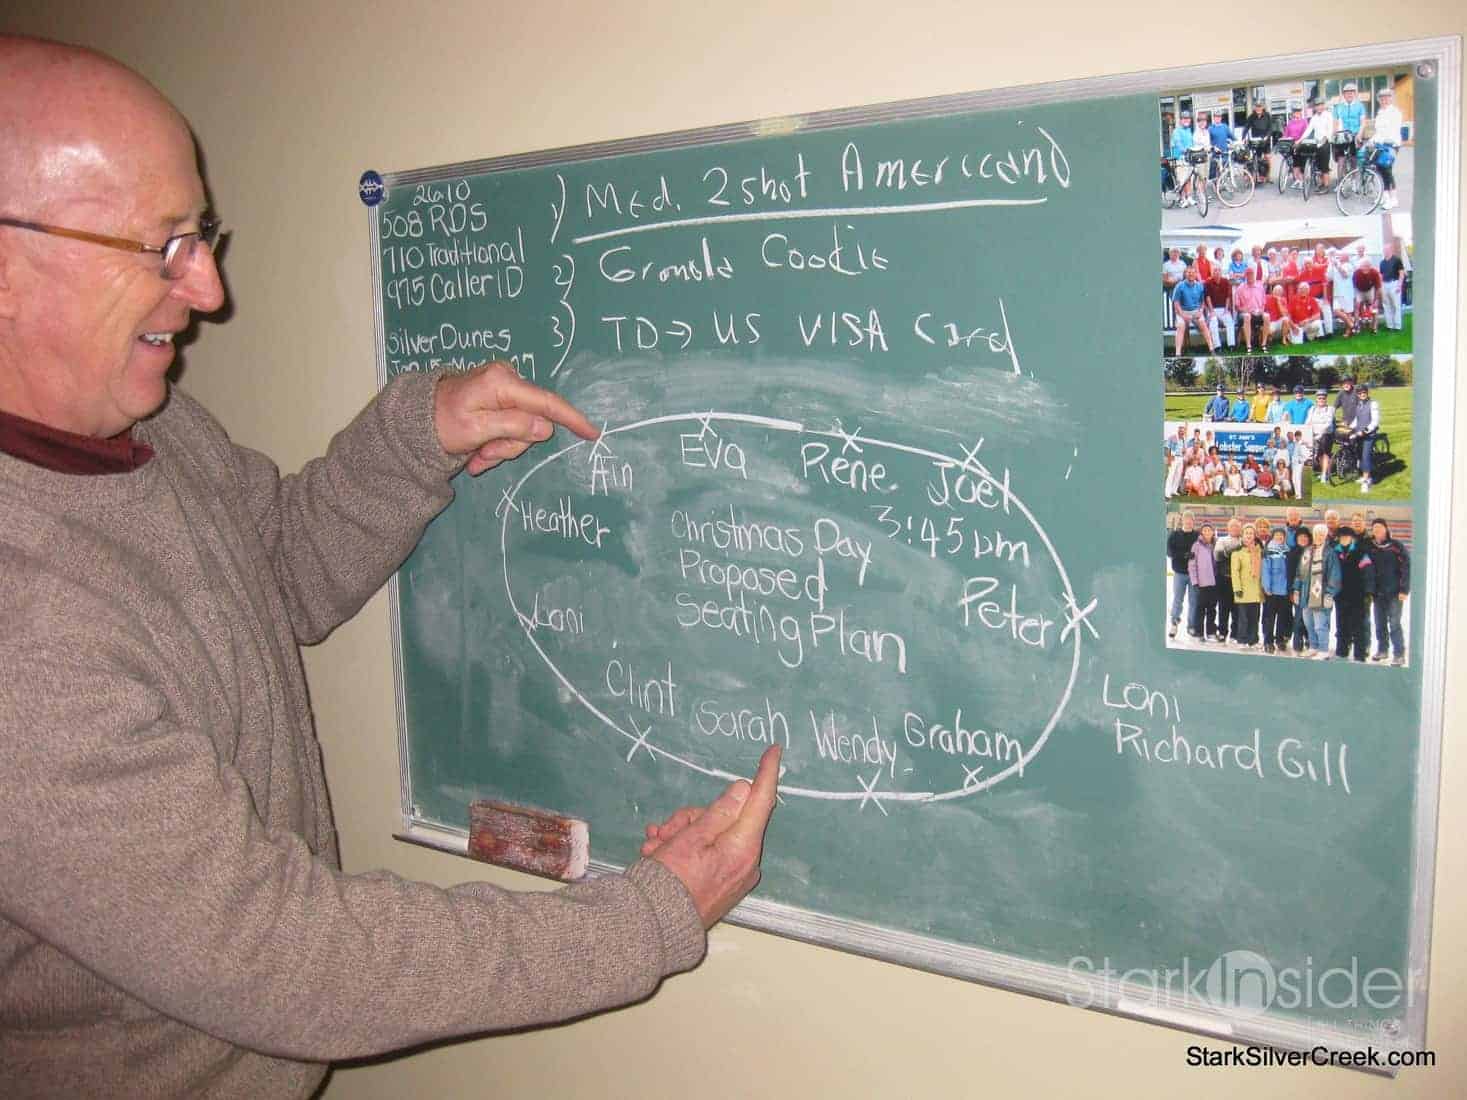 2610
508 RDS
710 Traditional
975 Caller ID
Silver Dunes
27
1) Med. 2 shot Americano
2) Cookie
3) TD → US VISA Card
Ain
Eva
Rene.
Joel
Heather
3:45 pm
Christmas Day
Proposed
Seating Plan
Loni
Peter
Clint
Sarah
Wendy
Graham
Loni
Richard Gill
ST. ANN'S
Lobster Supper
StarkInsider
ALL THINGS
StarkSilverCreek.com